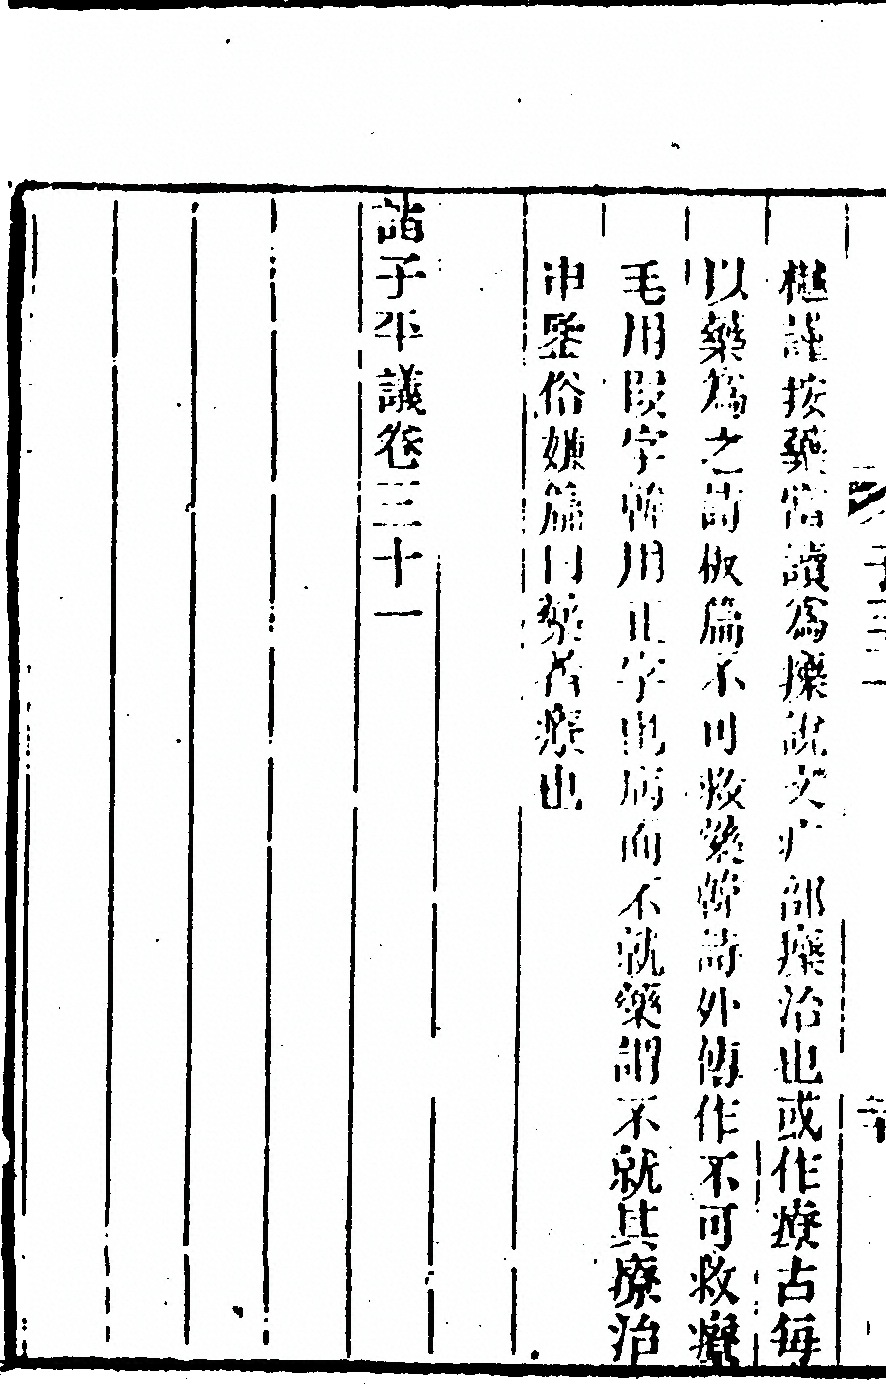 樾謹按藥當讀為𤻲說文疒部𤻲治也或作療古每
以藥為之詩板篇不可救藥韓詩外傳作不可救療
毛用叚字韓用正字也病而不就藥謂不就其療治
申鑒俗嫌篇曰藥者療也
諸子平議卷三十一
子三一